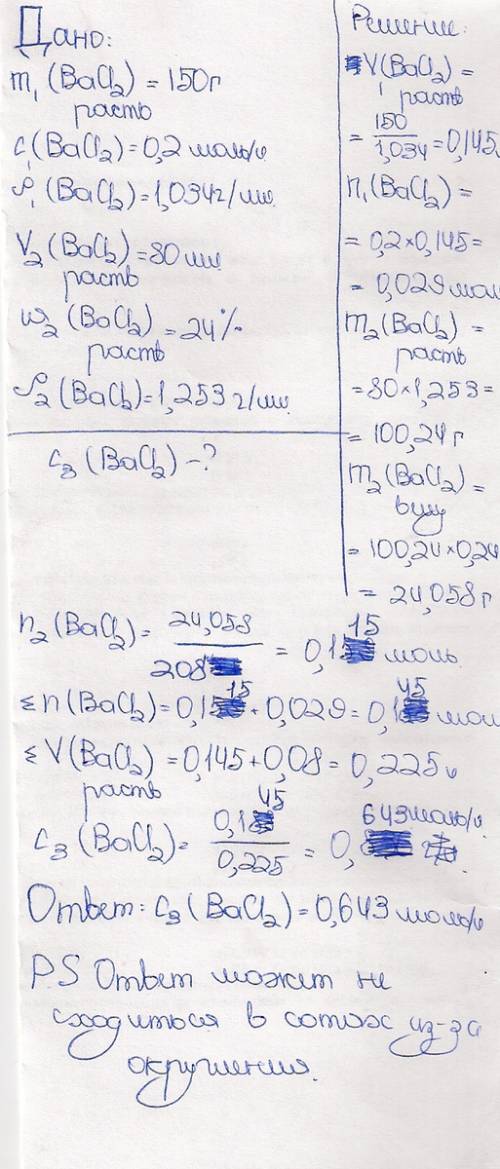 Дано:
m₁(BaCl₂) = 150г
раств
c₁(BaCl₂)=0,2 моль/л
ρ₁(BaCl₂)=1,034г/мл
V₂(BaCl₂)=80 мл
раств
ω₂(BaCl₂)=24%
раств
ρ₂(BaCl₂)=1,253 г/мл
c₃(BaCl₂) -?
Решение:
V₁(BaCl₂)=
раств
= 150/1,034 = 0,145
n₁(BaCl₂)=
= 0,2×0,145=
= 0,029 мол
m₂(BaCl₂) =
раств
=80×1,253=
= 100,24 г
m₂(BaCl₂) =
вещ
= 100,24×0,24
= 24,058 г
n₂(BaCl₂)= 24,058/208 = 0,115 моль
Σn(BaCl₂)=0,115+0,029=0,145 мол
ΣV(BaCl₂)=0,145+0,08=0,225 л
раств
c₃(BaCl₂)= 0,145/0,225 = 0,643 моль/л
Ответ: c₃(BaCl₂)=0,643 моль/л
PS Ответ может не
сходиться в сотых из-за
округления.